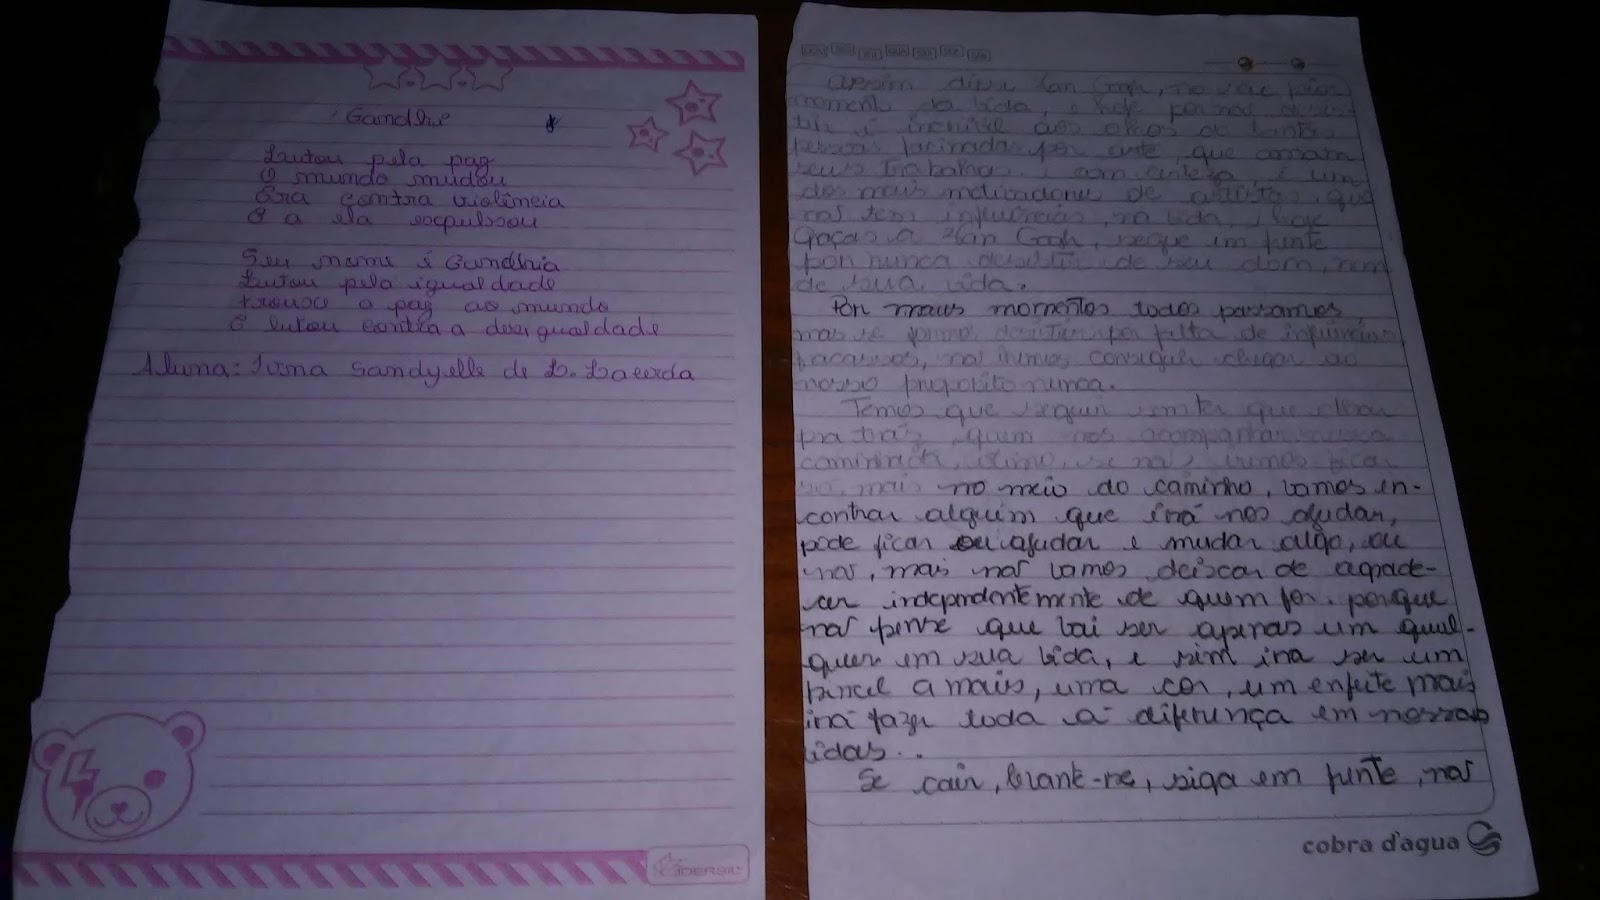 Gandhi
Lutou pela paz
O mundo mudou
Era contra violência
E a ela expulsou
Seu nome é Gandhia
Lutou pela igualdade
trouxe a paz ao mundo
E lutou contra a desigualdade
Aluna: Ivina Sandyelle de L. Lacerda
Assim disse Van Gogh, no seu pior
momento da vida, e hoje por não desis-
tir é incrivel aos olhos de tantas
pessoas facinadas por arte, que amam
seus trabalhos. E com certeza é um
dos mais motivadores de artistas, que
nos tem influencias na vida, hoje
Graças a Van Gogh, segue em frente
por nunca desistir de seu dom, nem
de sua vida.
Por maus momentos todos passamos,
mas se formos desistir por falta de
fracassos, não iremos conseguir chegar ao
nosso proposito nunca.
Temos que seguir sem ter que olhar
pra trás, quem nos acompanhar nessa
caminhada, ótimo, se não, iremos ficar
só, mais no meio do caminho, vamos en-
contrar alguém que irá nos ajudar,
pode ficar ou ajudar e mudar algo, ou
não, mais não vamos deixar de agrade-
cer independentemente de quem for. porque
não pense que vai ser apenas um qual-
quer em sua vida, e sim ira ser um
pincel a mais, uma cor, um enfeite mais
irá fazer toda a diferença em nossas
vidas...
Se cair, levante-se, siga em frente, não
cobra d'agua